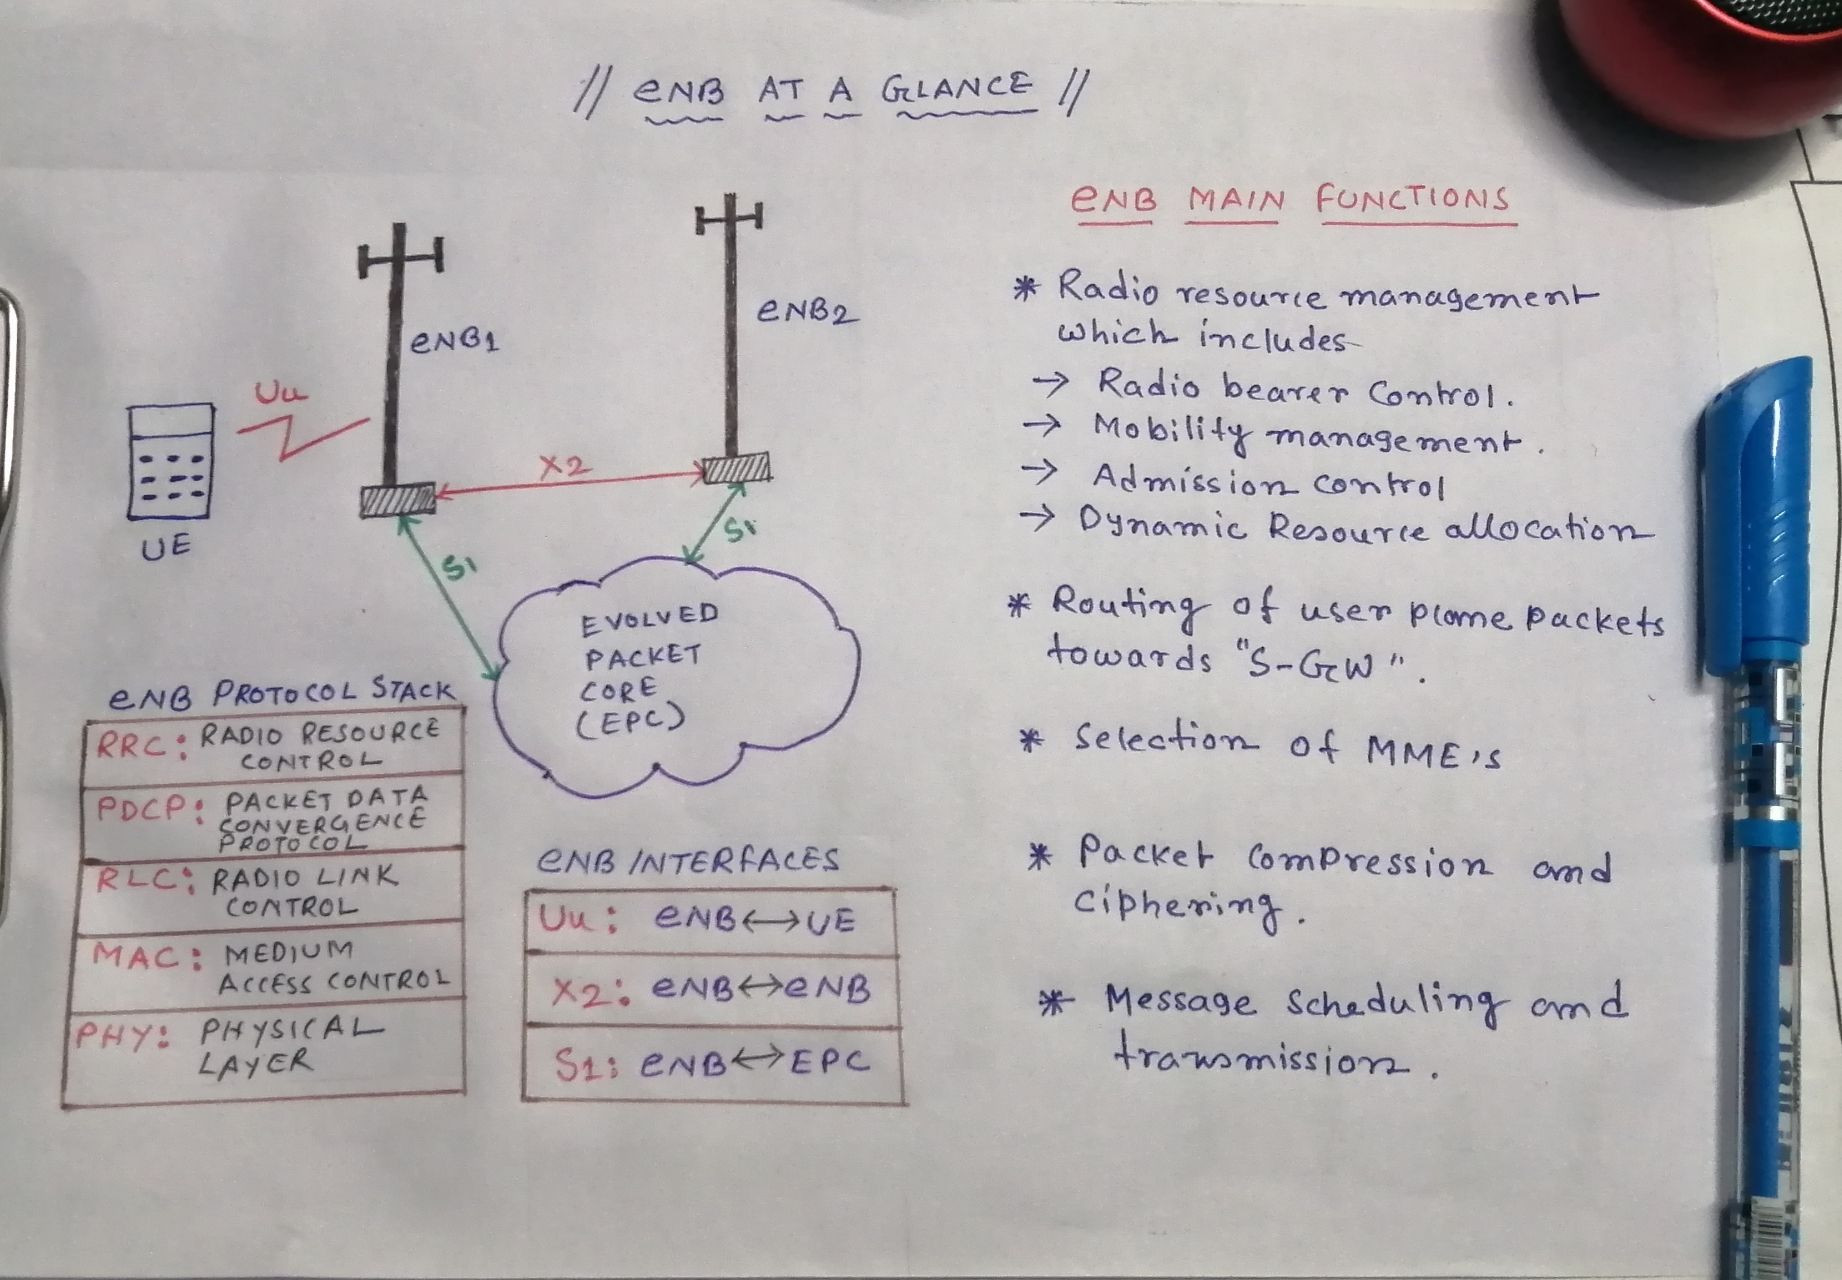 // eNB AT A GLANCE //
eNB1
eNB2
Uu
UE
X2
S1
S1
EVOLVED
PACKET
CORE
(EPC)
eNB PROTOCOL STACK
RRC: RADIO RESOURCE
CONTROL
PDCP: PACKET DATA
CONVERGENCE
PROTOCOL
RLC: RADIO LINK
CONTROL
MAC: MEDIUM
ACCESS CONTROL
PHY: PHYSICAL
LAYER
eNB INTERFACES
Uu: eNB ↔ UE
X2: eNB ↔ eNB
S1: eNB ↔ EPC
eNB MAIN FUNCTIONS
* Radio resource management
which includes
→ Radio bearer Control.
→ Mobility management.
→ Admission control
→ Dynamic Resource allocation
* Routing of user plane packets
towards "S-GW".
* Selection of MME's
* Packet compression and
ciphering.
* Message scheduling and
transmission.